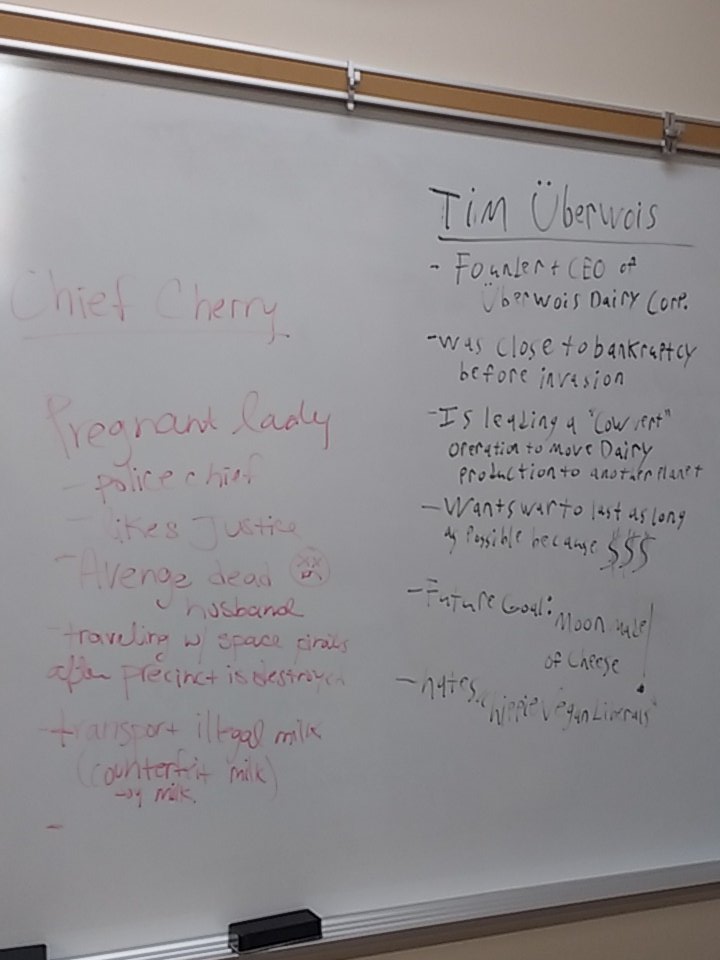 Chief Cherry
Pregnant lady
- police chief
- likes Justice
- Avenge dead
husband
- traveling w/ space pirates
after precinct is destroyed
- transport illegal milk
(counterfeit milk)
milk.
-
Tim Überwois
- Founder + CEO of
Überwois Dairy Corp.
- was close to bankruptcy
before invasion
- Is leading a "Cowvert"
operation to move Dairy
production to another Planet
- Wants war to last as long
as Possible because $$$
- Future Goal: Moon made
of Cheese!
- hates "hippie Vegan Liberals"